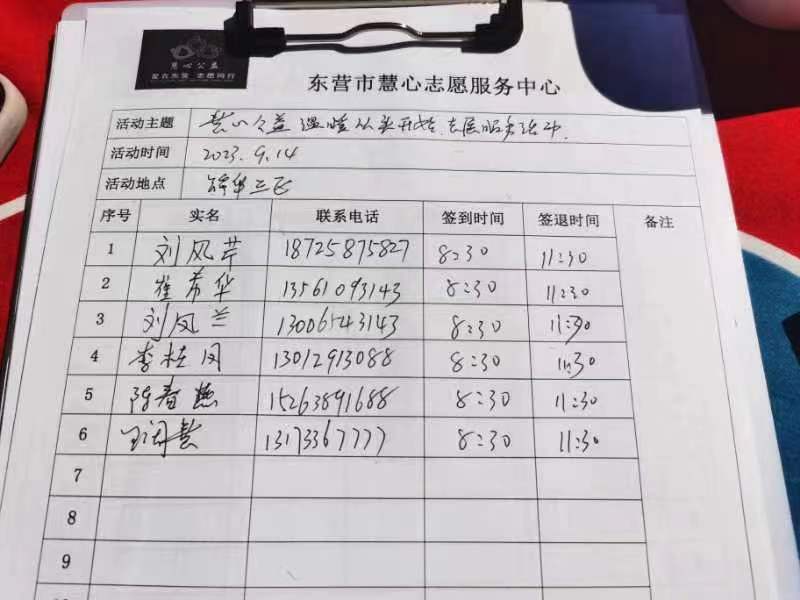 慧心公益
爱在东营 志愿同行
东营市慧心志愿服务中心
活动主题 慧心公益 温暖从头开始 志愿服务活动.
活动时间 2023.9.14
活动地点
序号 实名 联系电话 签到时间 签退时间 备注
1 刘风芹 18725875827 8:30 11:30
2 崔希华 13561093143 8:30 11:30
3 刘风兰 13006543143 8:30 11:30
4 李桂风 13012913088 8:30 11:30
5 陈春燕 15263891688 8:30 11:30
6 13173367777 8:30 11:30
7
8
9